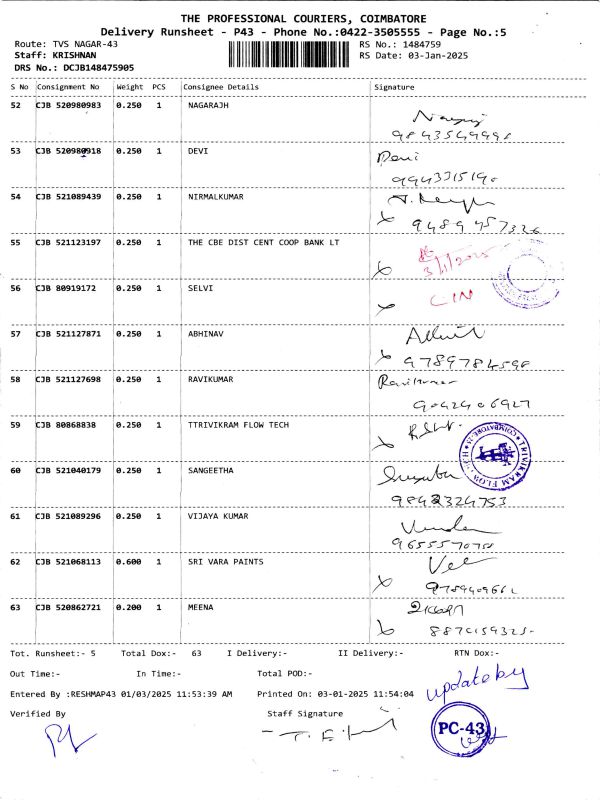 THE PROFESSIONAL COURIERS, COIMBATORE
Delivery Runsheet - P43 - Phone No.:0422-3505555 - Page No.:5
Route: TVS NAGAR-43
RS No.: 1484759
Staff: KRISHNAN
RS Date: 03-Jan-2025
DRS No.: DCJB148475905
S No Consignment No Weight PCS Consignee Details Signature
52 CJB 520980983 0.250 1 NAGARAJH
53 CJB 520980918 0.250 1 DEVI
Devi
54 CJB 521089439 0.250 1 NIRMALKUMAR
9489457326
55 CJB 521123197 0.250 1 THE CBE DIST CENT COOP BANK LT
3/1/2025
56 CJB 80919172 0.250 1 SELVI
57 CJB 521127871 0.250 1 ABHINAV
9789784596
58 CJB 521127698 0.250 1 RAVIKUMAR
Ravikumar
9042406927
59 CJB 80868838 0.250 1 TTRIVIKRAM FLOW TECH
TRIVIKRAM FLOW TECH COIMBATORE
60 CJB 521040179 0.250 1 SANGEETHA
9842324753
61 CJB 521089296 0.250 1 VIJAYA KUMAR
62 CJB 521068113 0.600 1 SRI VARA PAINTS
63 CJB 520862721 0.200 1 MEENA
Tot. Runsheet:- 5 Total Dox:- 63 I Delivery:- II Delivery:- RTN Dox:-
Out Time:- In Time:- Total POD:-
update by
Entered By :RESHMAP43 01/03/2025 11:53:39 AM Printed On: 03-01-2025 11:54:04
Verified By Staff Signature
PC-43